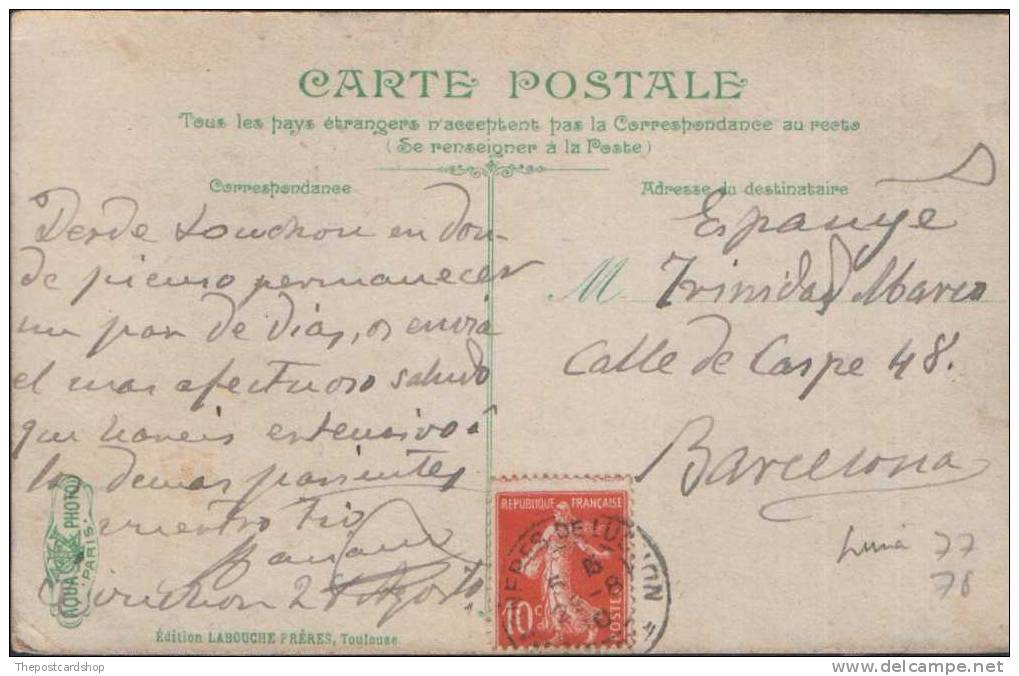 CARTE POSTALE
Tous les pays étrangers n'acceptent pas la Correspondance au recto
(Se renseigner à la Poste)
Correspondance
Desde Louchon en don-
de pienso permanecer
un par de dias, os envia
el mas afectuoso saludo
que hareis extensivo á
los demas parientes
vuestro tio
Louchon 28 Agosto
Adresse du destinataire
Espanye
M. Trinidad Marco
Calle de Caspe 48.
Barcelona
77
76
REPUBLIQUE FRANÇAISE
10c
POSTES
DE LUCHON
AQUA PHOTO
PARIS
Édition LABOUCHE FRÈRES, Toulouse
Thepostcardshop
delcampe.net